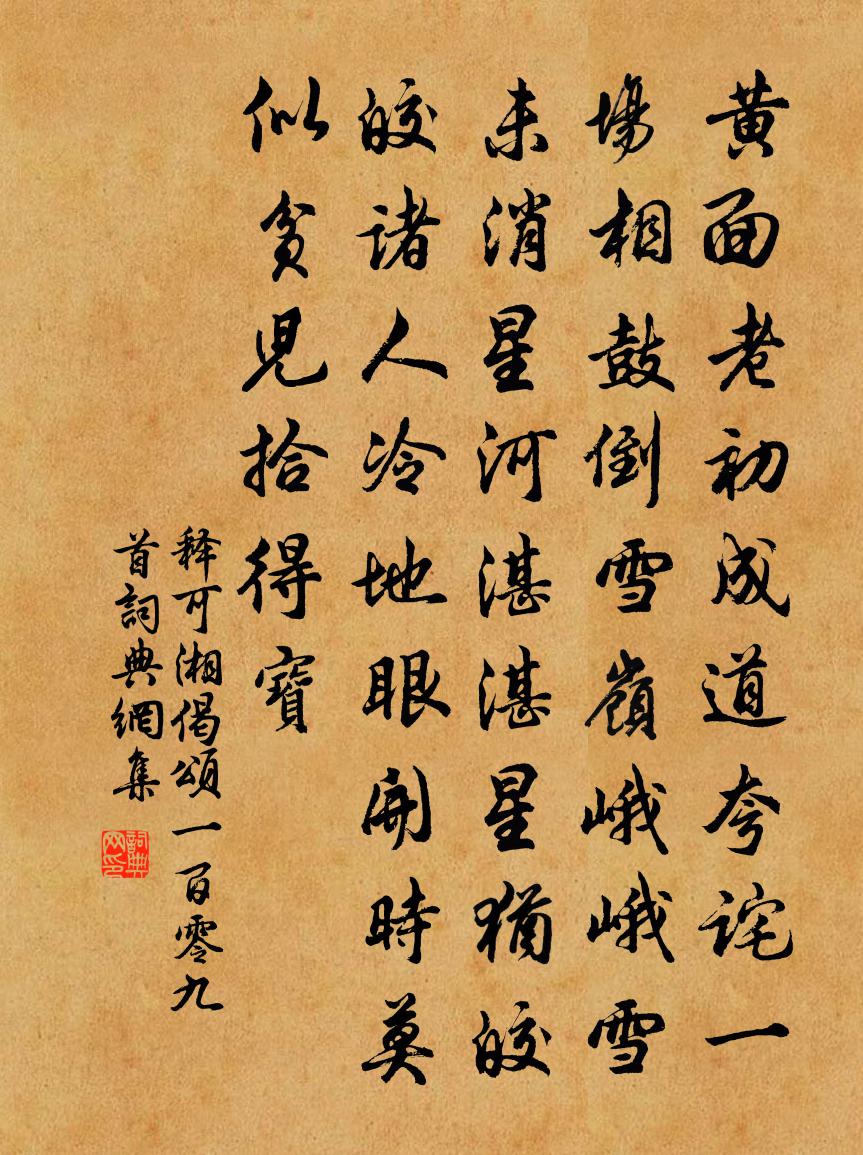 黄面老初成道夸詫一
場相鼓倒雪嶺峨峨雪
未消星河湛湛星猶皎
皎諸人冷地眼開時莫
似貧児拾得寶
释可湘偈頌一百零九
首詞典網集
詞典
网印